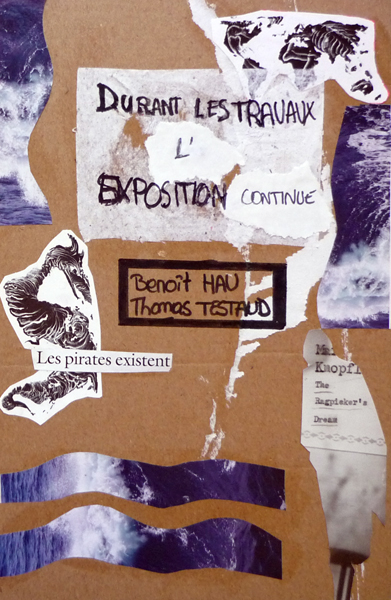 DURANT LES TRAVAUX
L'
EXPOSITION CONTINUE
Benoît HAU
Thomas TESTAUD
Les pirates existent
Knopfl
The
Ragpicker's
Dream